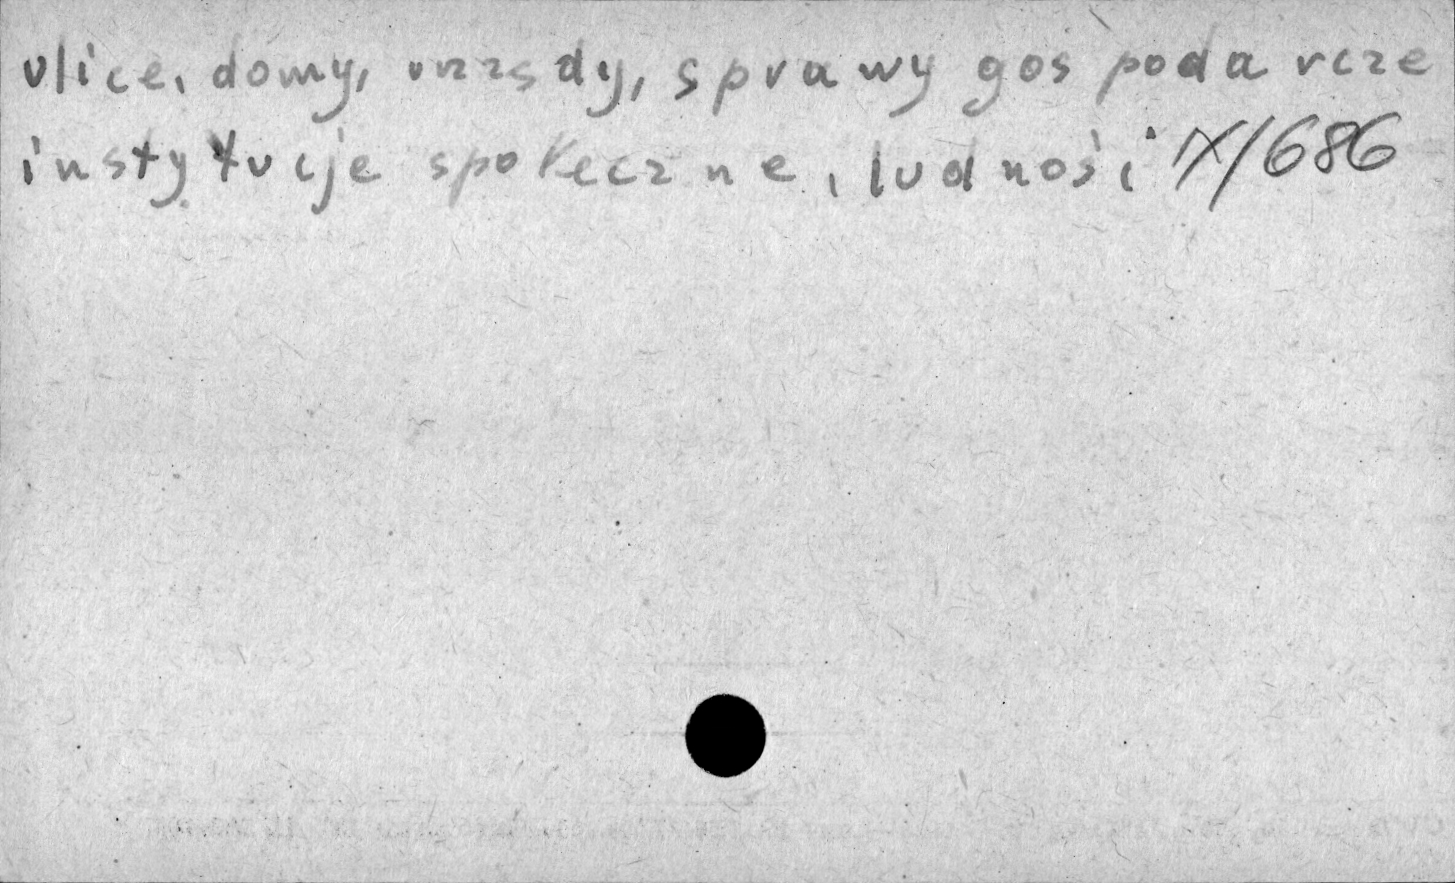 ulice, domy, urzędy, sprawy gospodarcze
instytucje społeczne, ludność IX/686